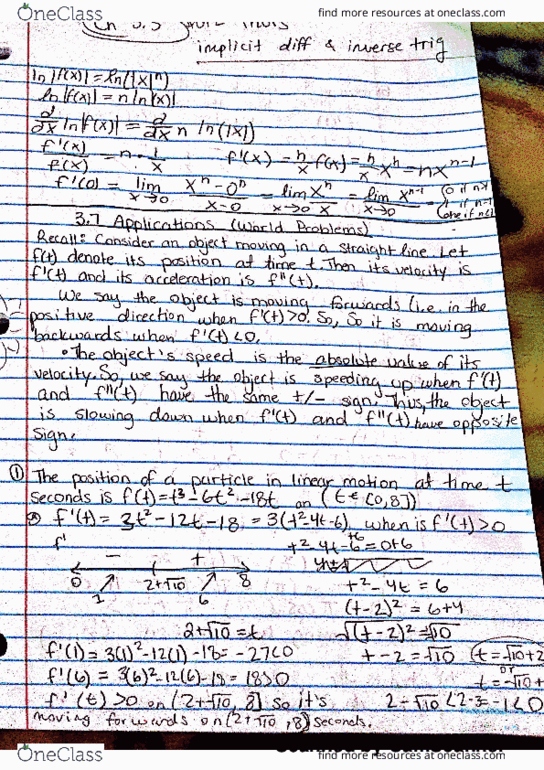 OneClass
find more resources at oneclass.com
implicit diff & inverse trig
ln|f(x)| = ln(|x|ⁿ)
ln|f(x)| = n ln|x|
d/dx ln|f(x)| = d/dx n ln(|x|)
f'(x)/f(x) = n · 1/x f'(x) = n/x f(x) = n/x xⁿ = nxⁿ⁻¹
f'(0) = lim x→0 xⁿ-0ⁿ/x-0 = lim x→0 xⁿ/x = lim x→0 xⁿ⁻¹ =
3.7 Applications (World Problems)
Recall: Consider an object moving in a straight line. Let
f(t) denote its position at time t. Then its velocity is
f'(t) and its acceleration is f"(t).
We say the object is moving forwards (i.e. in the
positive direction when f'(t)>0. So, So it is moving
backwards when f'(t)<0.
•The object's speed is the absolute value of its
velocity. So, we say the object is speeding up when f'(t)
and f"(t) have the same +/- sign. Thus, the object
is slowing down when f'(t) and f"(t) have opposite
sign.
① The position of a particle in linear motion at time t
seconds is f(t)=t³-6t²-18t on (t ∈ [0,8])
ⓐ f'(t) = 3t²-12t-18 = 3(t²-4t-6), when is f'(t)>0
t²-4t-6=0+6
+6
f' - +
0 2+√10 8
1 6
t²-4t = 6
(t-2)² = 6+4
2+√10 = t √(t-2)² = √10
f'(1) = 3(1)²-12(1)-18 = -27<0 t-2 = √10 t=√10+2
or
f'(6) = 3(6)²-12(6)-18 = 18>0 t=-√10+
f'(t)>0 on (2+√10, 8] so it's 2-√10 <2-3=-1<0
moving forwards on (2+√10, 8) seconds.
OneClass
find more resources at oneclass.com